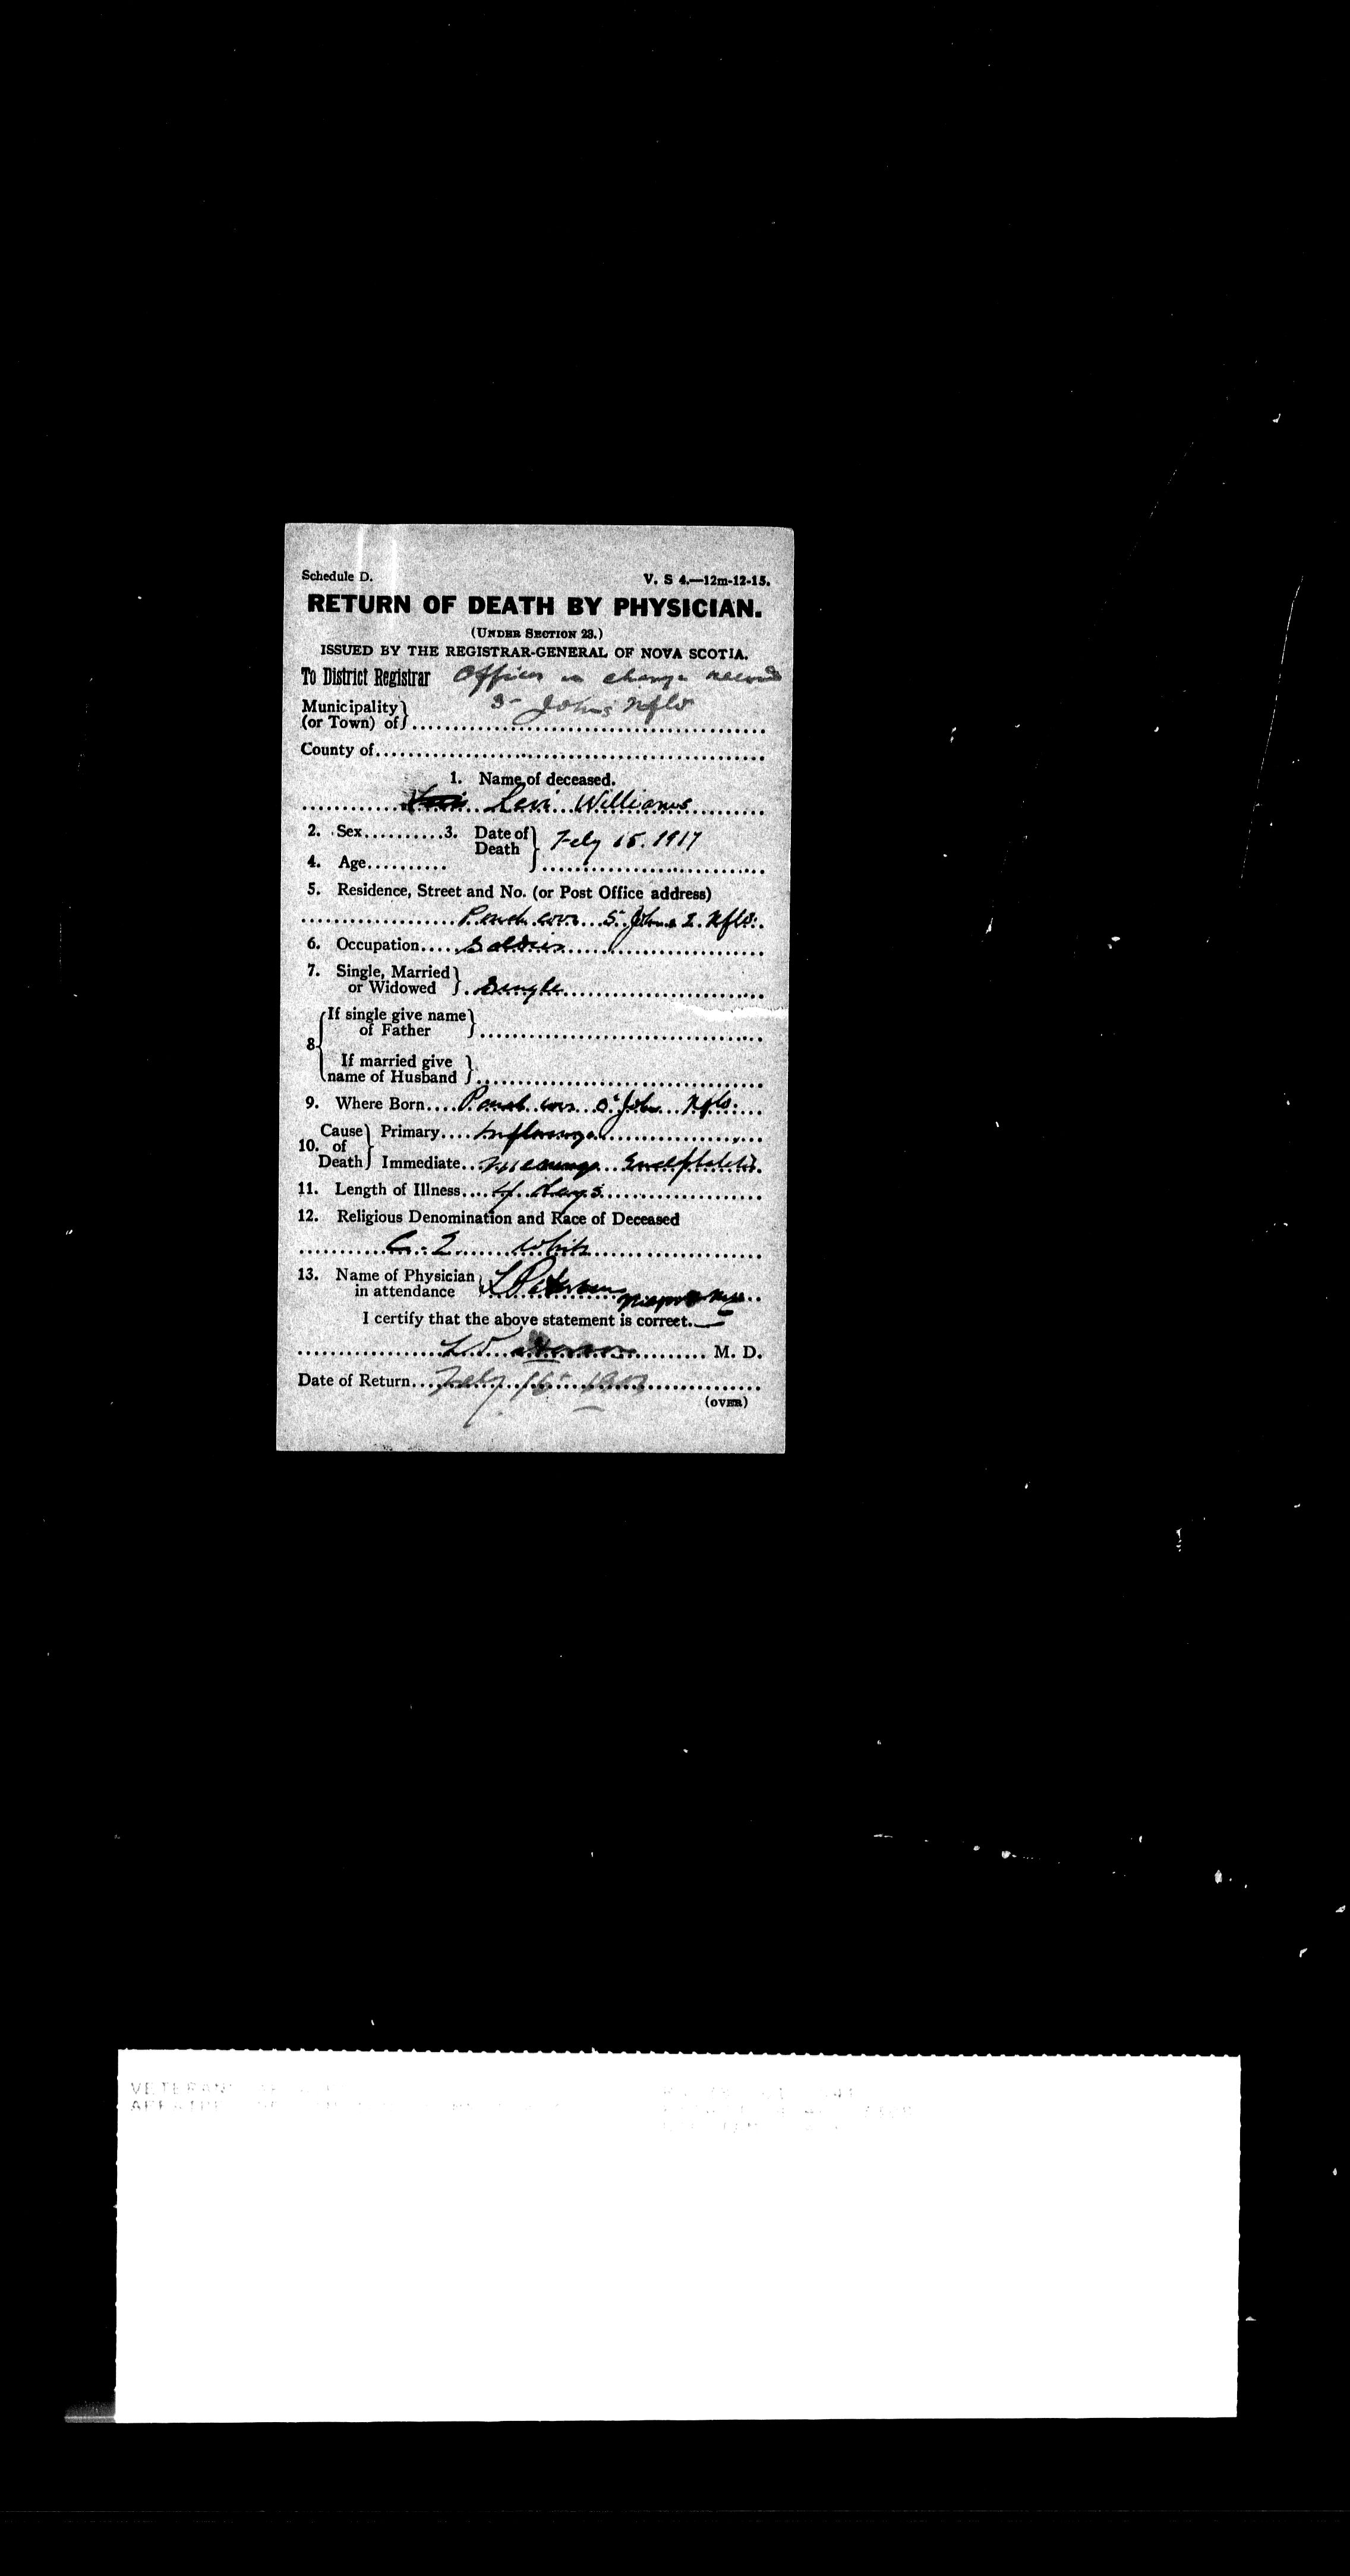 Schedule D. V. S 4.—12m-12-15.
RETURN OF DEATH BY PHYSICIAN.
(UNDER SECTION 23.)
ISSUED BY THE REGISTRAR-GENERAL OF NOVA SCOTIA.
To District Registrar Officer in charge records
Municipality (or Town) of St Johns Nfld
County of
1. Name of deceased.
Levi Williams
2. Sex 3. Date of Death Feby 15. 1917
4. Age
5. Residence, Street and No. (or Post Office address)
Pouch cove St Johns E. Nfld.
6. Occupation Soldier
7. Single, Married or Widowed Single
8 If single give name of Father
If married give name of Husband
9. Where Born Pouch cove St John Nfld.
10. Cause of Death Primary Influenza
Immediate Encephalitis
11. Length of Illness 4 days
12. Religious Denomination and Race of Deceased
C. E. White
13. Name of Physician in attendance
I certify that the above statement is correct.
M. D.
Date of Return Feby 16
(OVER)
VETERANS